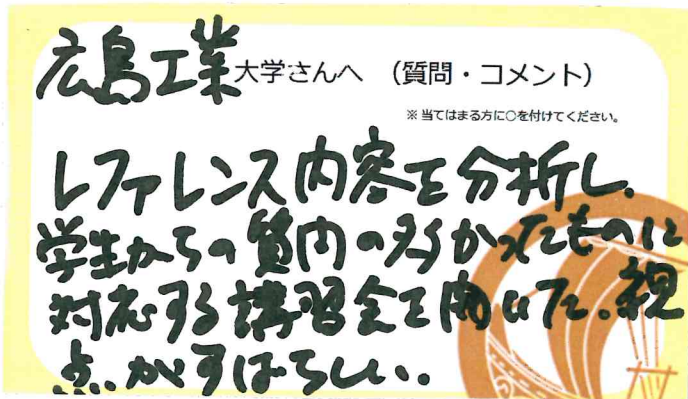 広島工業大学さんへ （質問・コメント）
※ 当てはまる方に○を付けてください。
レファレンス内容を分析し、
学生からの質問の多かったものに
対応する講習会を開いた。視
点がすばらしい。